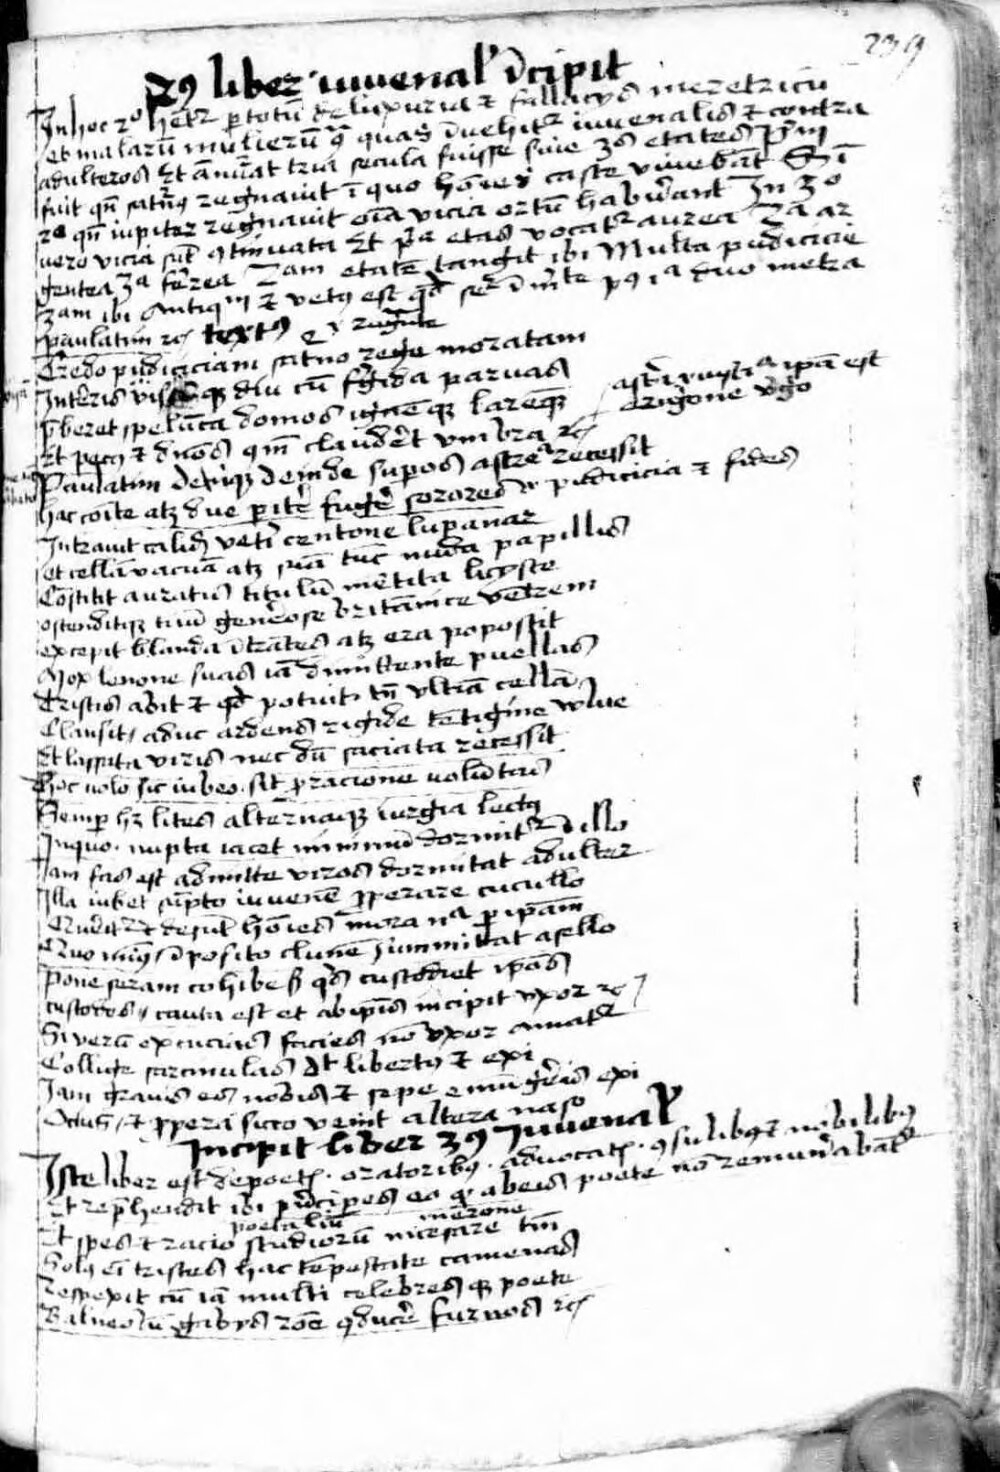 239
2us liber iuvenal' incipit
In hoc 2o habetur per totum de luxuria et fallacijs meretricum
et malarum mulierum quas invehitur iuvenalis et contra
adulteros Et tria secula fuisse sive 3s etates prim
fuit quando saturnus regnavit in quo homines caste vivebant
2a quando iupiter regnavit omnia vicia ortum habuerant In 3o
vero vicia sunt continuata Et prima etas vocatur aurea 2a ar
gentea 3a ferrea 2am etatem tangit ibi Multa pudicicie
3am ibi Antiquum et vetus est duo metra
paulatim rc textus
regnante
Credo pudiciciam saturno rege moratam
In terris visamque diu cum frigida parvas
preberet spelunca domos ignemque laremque
astrea ipsa est
erigone virgo
Et pecus et dominos communi clauderet umbra rc
Paulatim deinde superos astrea recessit
hac comite atque due pariter fugere sorores pudicicia et fides
Intravit calidum veteri centone lupanar
et cellam vacuam atque suam tunc nuda papillis
Constitit auratis titulum mentita licyste
ostenditque tuum generose britanice ventrem
excepit blanda intrantes atque era poposcit
Mox lenone suas iam dimittente puellas
Tristis abit et quod potuit tamen ultimam cellam
Clausit adhuc ardens rigide tentigine vulve
Et lassata viris nec dum saciata recessit
Hoc volo sic iubeo sit pro racione voluntas
Semper habet lites alternaque iurgia lectus
In quo nupta iacet minimum dormitur in illo
Iam fas est admitte viros dormitat adulter
Illa iubet sumpto iuvenem properare cucullo
Queritur et desunt homines mora nulla per ipsam
Quo minus imposito clunem summittat asello
Pone seram cohibe sed quis custodiet ipsos
custodes cauta est et ab ipsis incipit uxor rc
Si verum excucias facies non uxor amatur
Collige sarcinulas dicit libertus et exi
Iam gravis es nobis et sepe emungeris exi
Ocius et propera sicco venit altera naso
Incipit liber 3us Iuvenal'
Iste liber est de poetis oratoribus advocatis consulibus et nobilibus
Et reprehendit ibi principes eo quod ab eis poete non remunerabantur
poetalium in nerone
Et spes et racio studiorum in cesare tantum
Solus enim tristes hac tempestate camenas
respexit cum iam multi celebres que poete
Balneolum gabijs rome conducere furnos rc